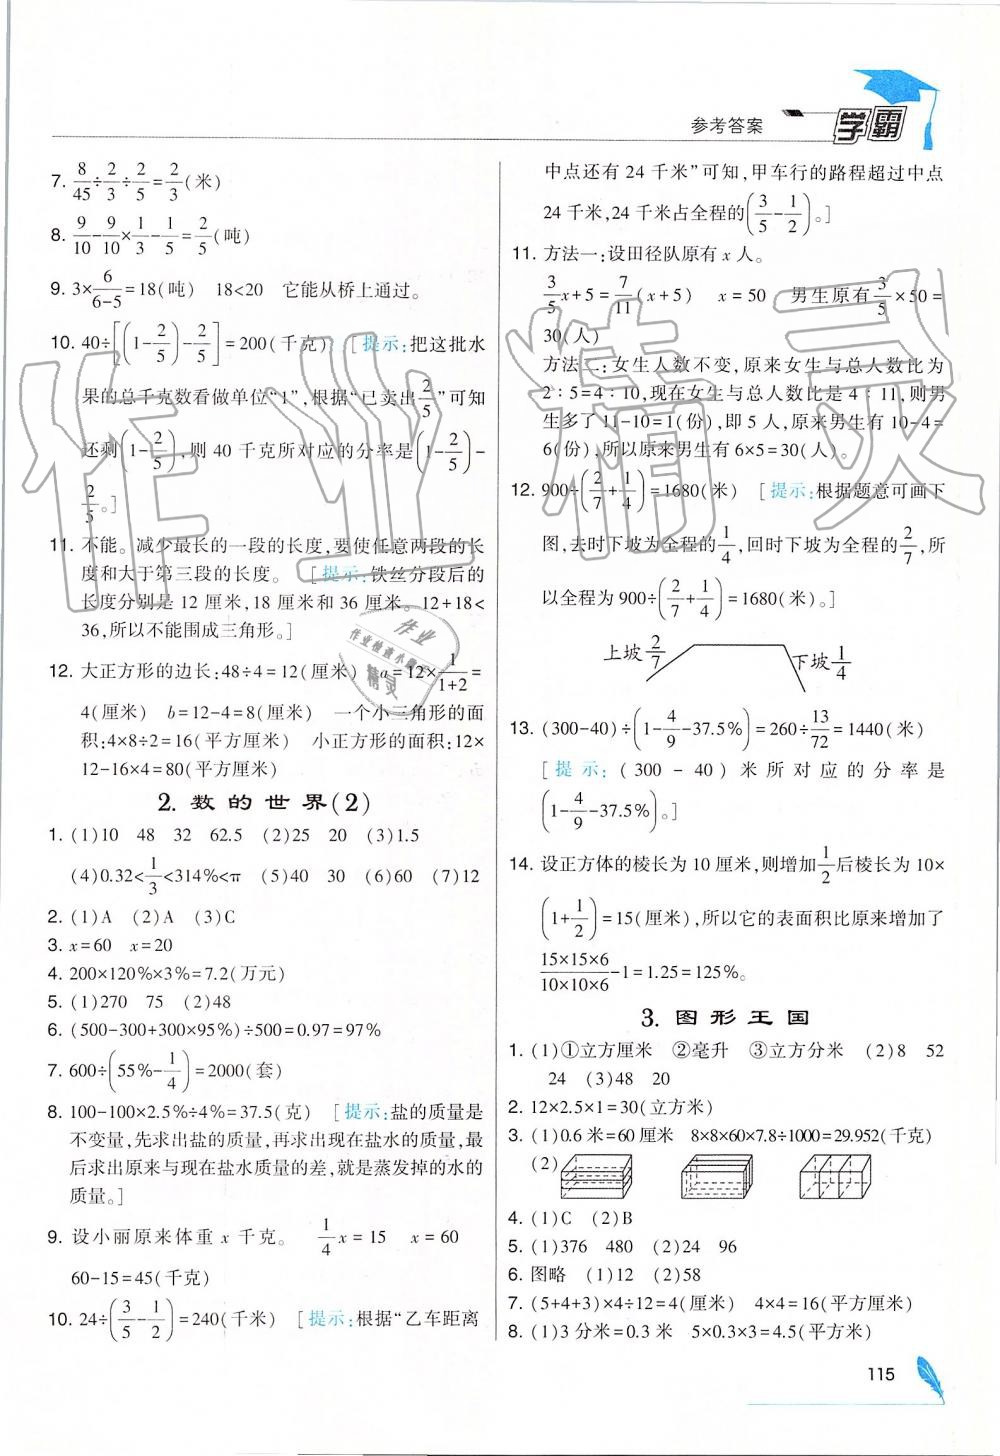 参考答案 学霸
7. 8/45÷2/3÷2/5=2/3(米)
8. 9/10-9/10×1/3-1/5=2/5(吨)
9. 3×6/(6-5)=18(吨) 18<20 它能从桥上通过。
10. 40÷[(1-2/5)-2/5]=200(千克) [提示:把这批水
果的总千克数看做单位“1”,根据“已卖出2/5”可知
还剩(1-2/5),则 40 千克所对应的分率是(1-2/5)-
2/5。]
11. 不能。减少最长的一段的长度,要使任意两段的长
度和大于第三段的长度。 [提示:铁丝分段后的
长度分别是 12 厘米,18 厘米和 36 厘米。12+18<
36,所以不能围成三角形。]
12. 大正方形的边长:48÷4=12(厘米) a=12×1/(1+2)=
4(厘米) b=12-4=8(厘米) 一个小三角形的面
积:4×8÷2=16(平方厘米) 小正方形的面积:12×
12-16×4=80(平方厘米)
2. 数的世界(2)
1. (1)10 48 32 62.5 (2)25 20 (3)1.5
(4)0.32<1/3<314%<π (5)40 30 (6)60 (7)12
2. (1)A (2)A (3)C
3. x=60 x=20
4. 200×120%×3%=7.2(万元)
5. (1)270 75 (2)48
6. (500-300+300×95%)÷500=0.97=97%
7. 600÷(55%-1/4)=2000(套)
8. 100-100×2.5%÷4%=37.5(克) [提示:盐的质量是
不变量,先求出盐的质量,再求出现在盐水的质量,最
后求出原来与现在盐水质量的差,就是蒸发掉的水的
质量。]
9. 设小丽原来体重 x 千克。 1/4x=15 x=60
60-15=45(千克)
10. 24÷(3/5-1/2)=240(千米) [提示:根据“乙车距离
中点还有 24 千米”可知,甲车行的路程超过中点
24 千米,24 千米占全程的(3/5-1/2)。]
11. 方法一:设田径队原有 x 人。
3/5x+5=7/11(x+5) x=50 男生原有3/5×50=
30(人)
方法二:女生人数不变,原来女生与总人数比为
2:5=4:10,现在女生与总人数比是 4:11,则男
生多了 11-10=1(份),即 5 人,原来男生有 10-4=
6(份),所以原来男生有 6×5=30(人)。
12. 900÷(2/7+1/4)=1680(米) [提示:根据题意可画下
图,去时下坡为全程的1/4,回时下坡为全程的2/7,所
以全程为900÷(2/7+1/4)=1680(米)。]
上坡2/7 下坡1/4
13. (300-40)÷(1-4/9-37.5%)=260÷13/72=1440(米)
[提示:(300-40)米所对应的分率是
(1-4/9-37.5%)。]
14. 设正方体的棱长为 10 厘米,则增加1/2后棱长为 10×
(1+1/2)=15(厘米),所以它的表面积比原来增加了
15×15×6/10×10×6-1=1.25=125%。
3. 图形王国
1. (1)①立方厘米 ②毫升 ③立方分米 (2)8 52
24 (3)48 20
2. 12×2.5×1=30(立方米)
3. (1)0.6 米=60 厘米 8×8×60×7.8÷1000=29.952(千克)
(2)
4. (1)C (2)B
5. (1)376 480 (2)24 96
6. 图略 (1)12 (2)58
7. (5+4+3)×4÷12=4(厘米) 4×4=16(平方厘米)
8. (1)3 分米=0.3 米 5×0.3×3=4.5(平方米)
115
作业精灵
作业
作业检查小
精灵